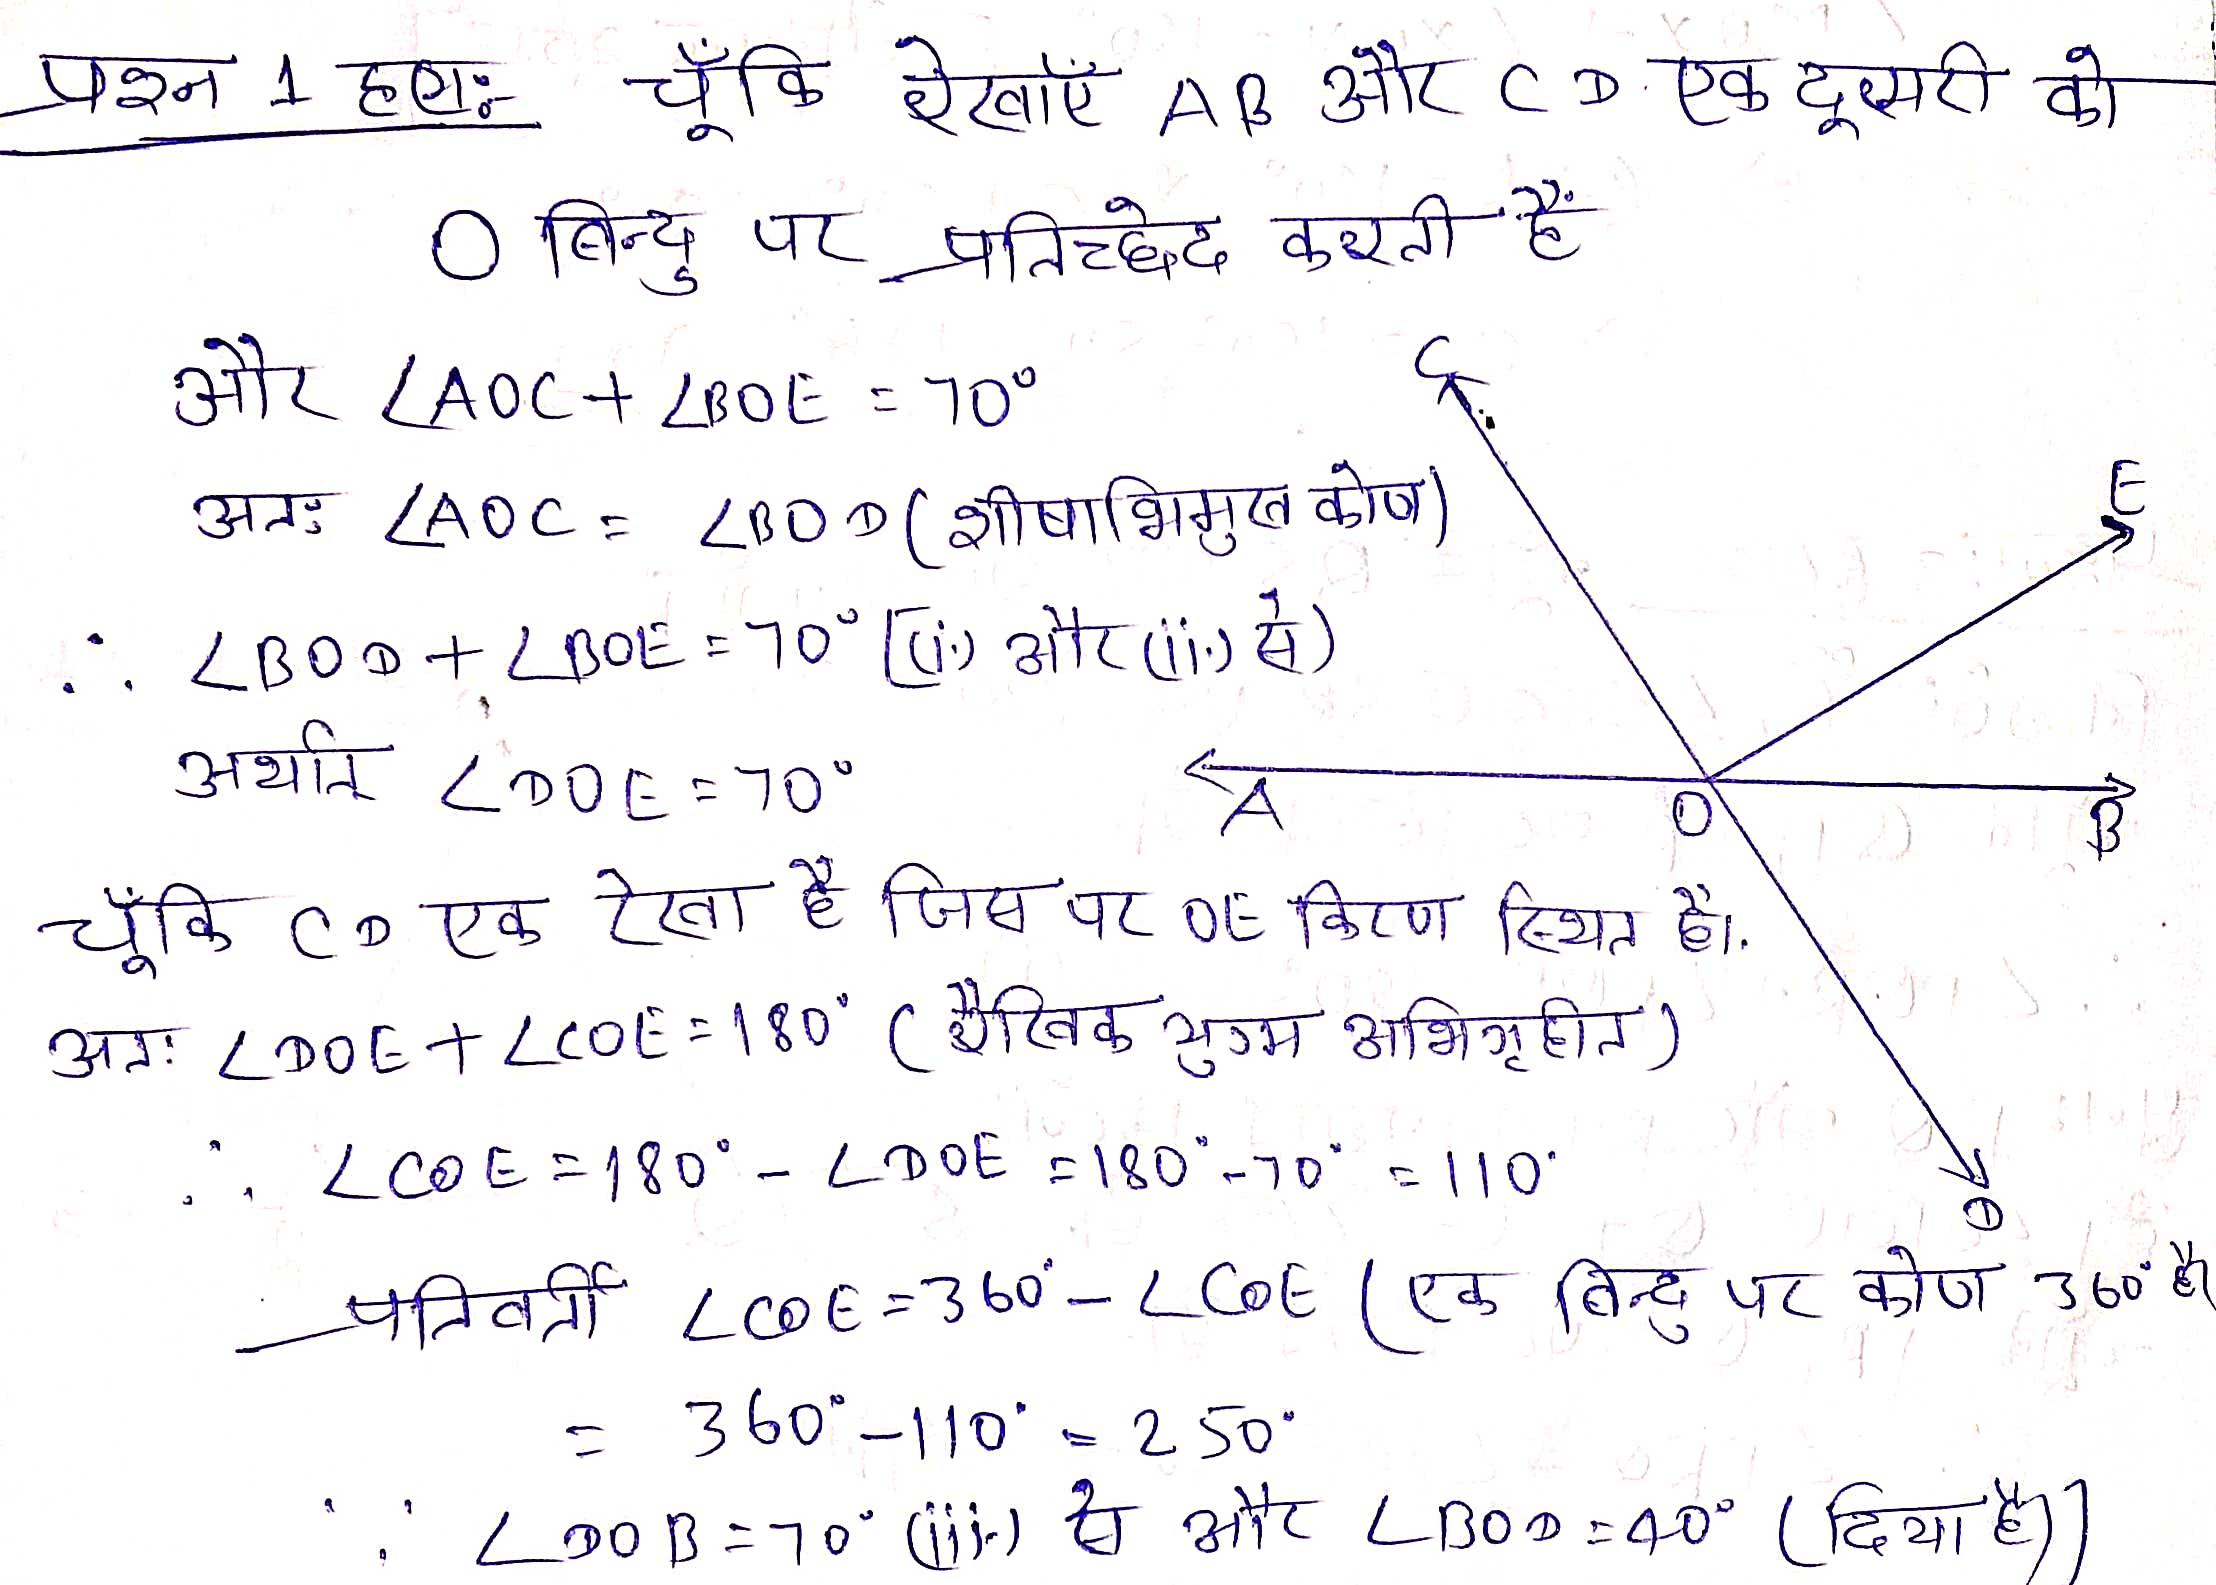 प्रश्न 1 हल:- चूँकि रेखाएँ AB और CD एक दूसरी को
O बिन्दु पर प्रतिच्छेद करती हैं
और ∠AOC + ∠BOE = 70°
अतः ∠AOC = ∠BOD (शीषाभिमुख कोण)
∴ ∠BOD + ∠BOE = 70° [(i.) और (ii.) से)
अर्थात् ∠DOE = 70°
चूँकि CD एक रेखा है जिस पर OE किरण स्थित है।
अतः ∠DOE + ∠COE = 180° (रैखिक युग्म अभिगृहीत)
∴ ∠COE = 180° - ∠DOE = 180° - 70° = 110°
प्रतिवर्ती ∠COE = 360° - ∠COE (एक बिन्दु पर कोण 360° है।
= 360° - 110° = 250°
∵ ∠DOB = 70° (iii.) से और ∠BOD = 40° (दिया है)]
C
E
A
O
B
D